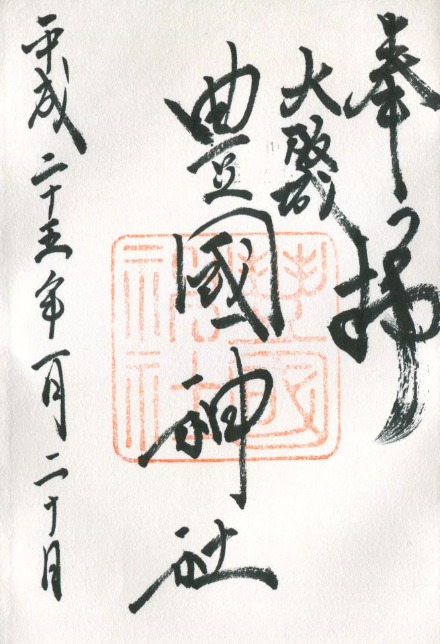 奉拝
大阪城
豊國神社
平成二十五年一月二十日
豊國
神社